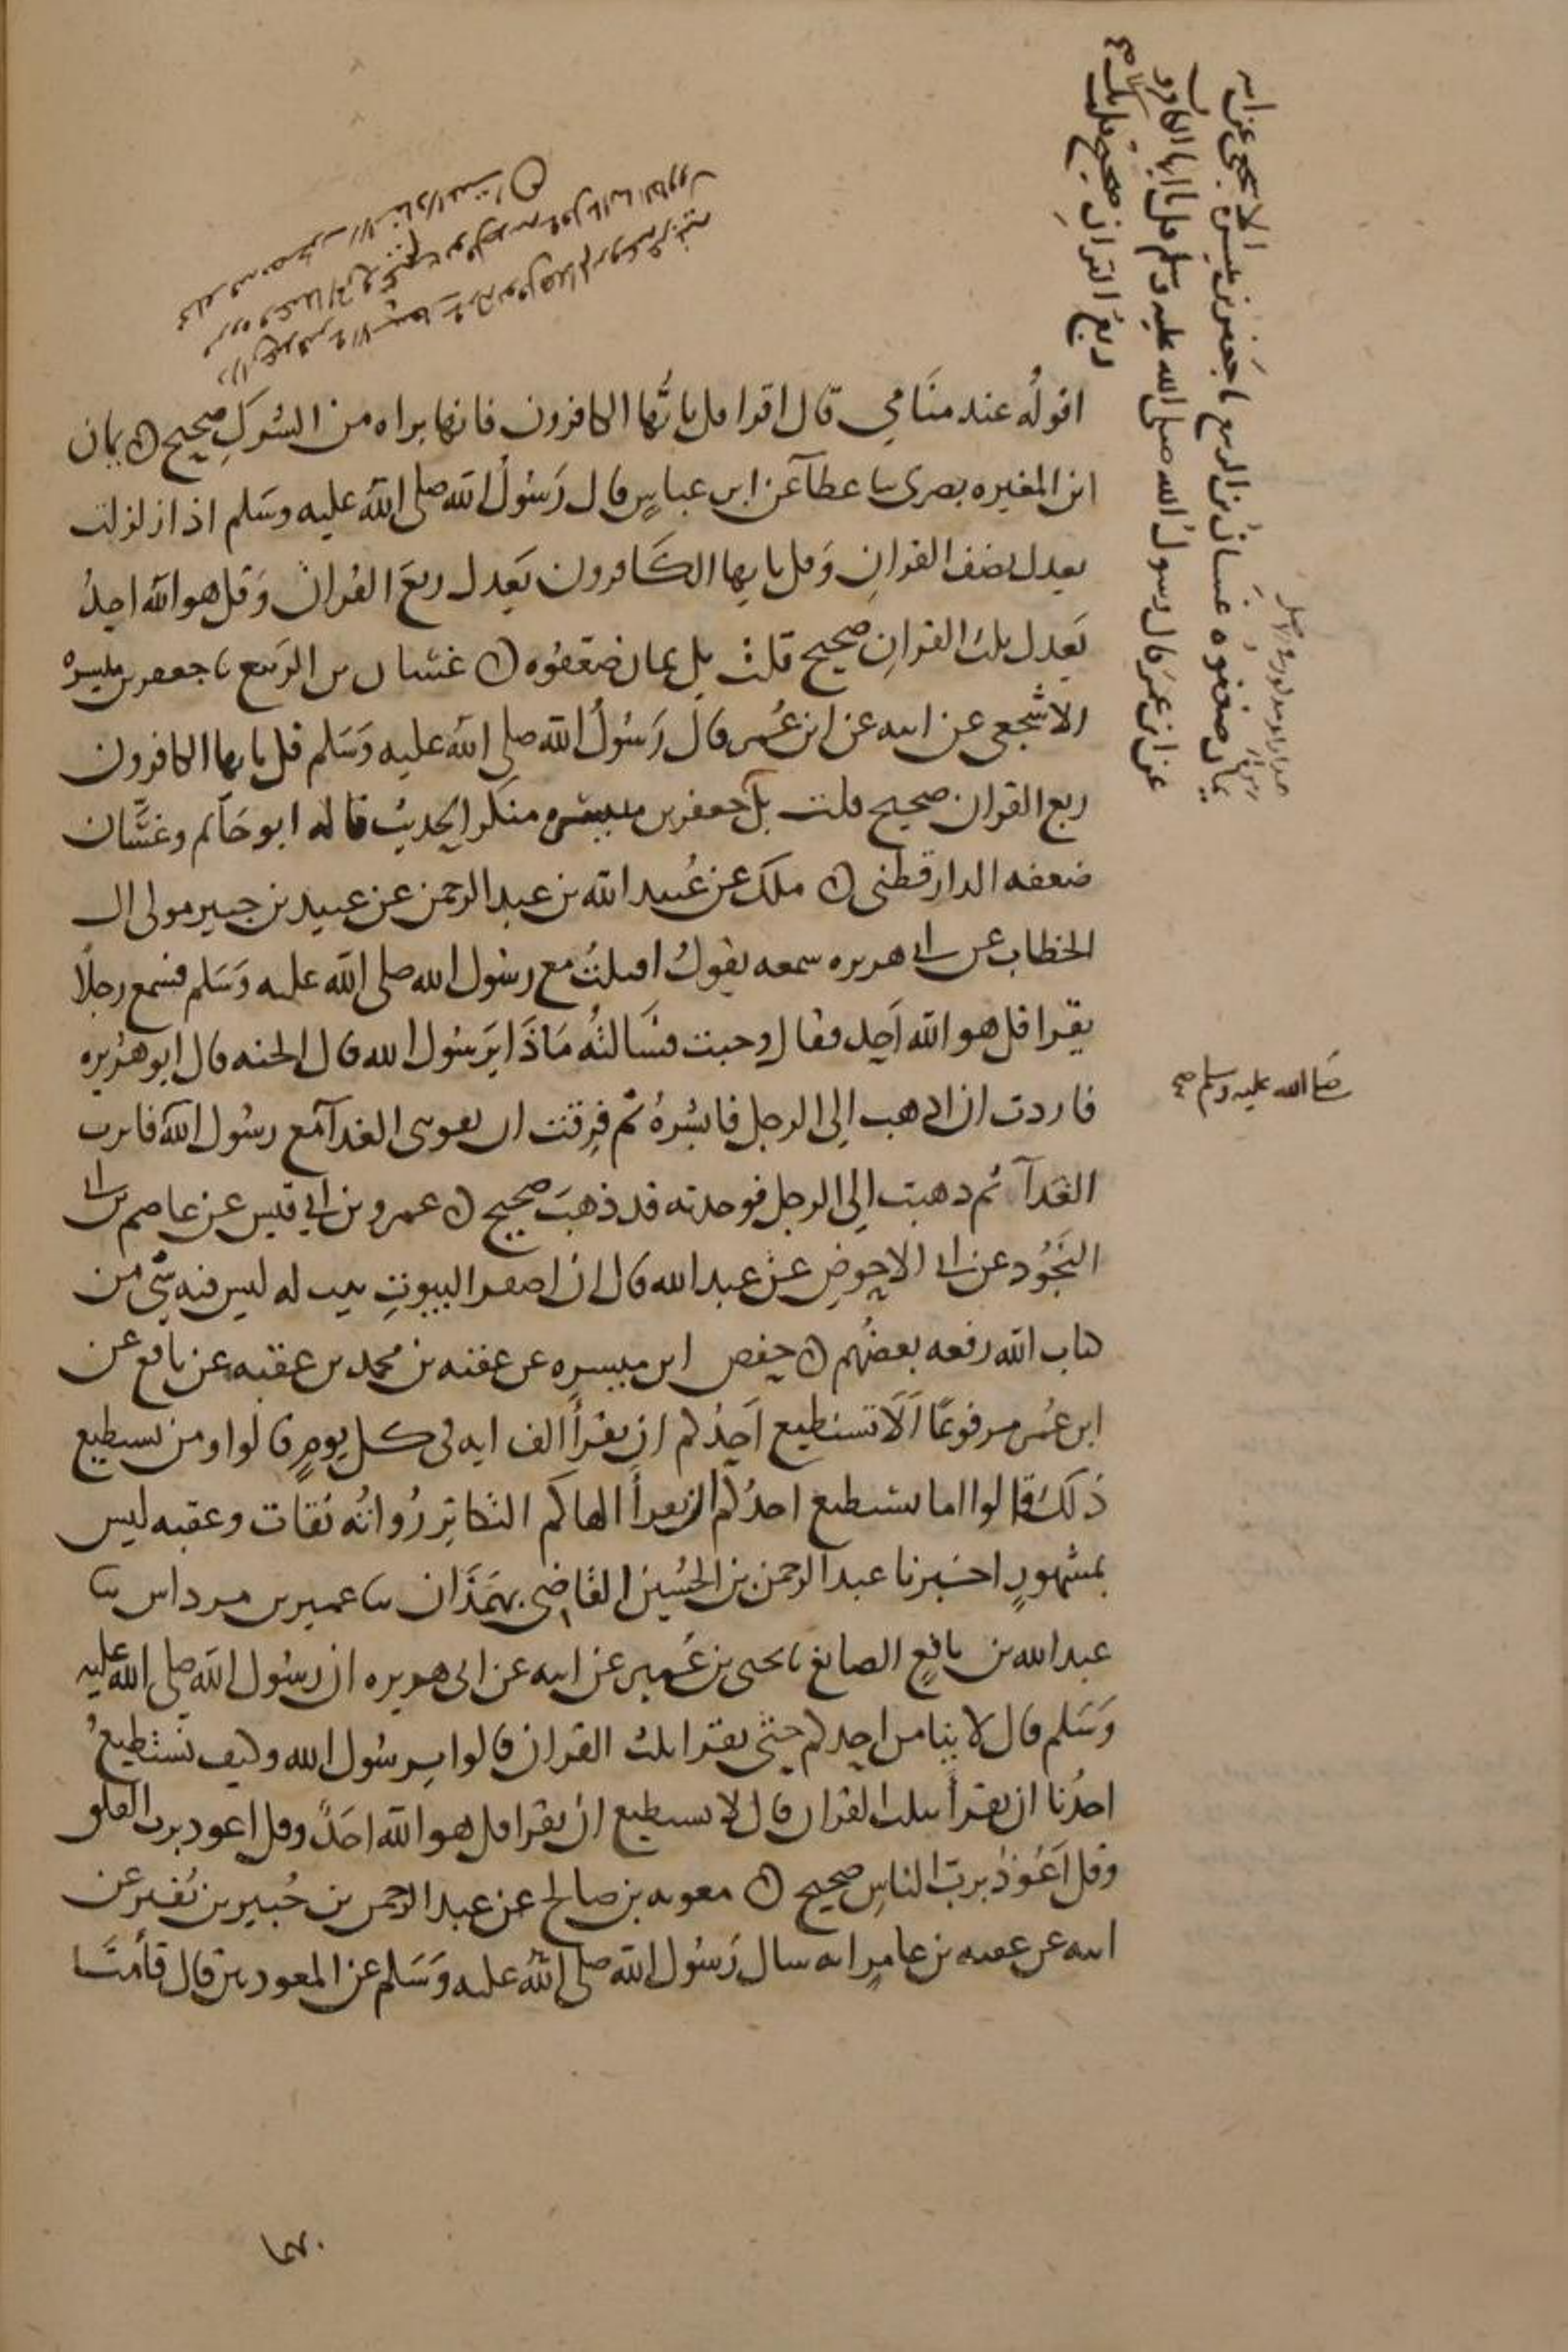 اقوله عند منامي قال اقرا قل يايها الكافرون فانها براه من الشرك صحيح ٥ يمان
ابن المغيره بصري سا عطا عن ابن عباس قال رسول الله صلى الله عليه وسلم اذا زلزلت
يعدل نصف القران وقل يايها الكافرون يعدل ربع القران وقل هو الله احد
يعدل ثلث القران صحيح قلت بل يمان ضعفوه ٥ غسان بن الربيع نا جعفر بن ميسره
الاشجعي عن ابيه عن ابن عمر قال رسول الله صلى الله عليه وسلم قل يايها الكافرون
ربع القران صحيح قلت بل جعفر بن ميسره منكر الحديث قاله ابو حاتم وغسان
ضعفه الدارقطني ٥ ملك عن عبيد الله بن عبد الرحمن عن عبيد بن جبير مولى ال
الخطاب عن ابي هريره سمعه يقول اقبلت مع رسول الله صلى الله عليه وسلم فسمع رجلا
يقرا قل هو الله احد فقال وجبت فسالته ماذا يرسول الله قال الجنه قال ابو هريره
فاردت ان اذهب الى الرجل فابشره ثم فرقت ان يفوتني الغدآ مع رسول الله فاثرت
صلى الله عليه وسلم صح
الغدآ ثم ذهبت الى الرجل فوجدته قد ذهب صحيح ٥ عمرو بن ابي قيس عن عاصم بن ابي
النجود عن ابي الاحوص عن عبد الله قال ان اصفر البيوت بيت له ليس فيه شي من
كتاب الله رفعه بعضهم ٥ حفص ابن ميسره عن عقبه بن محمد بن عقبه عن نافع عن
ابن عمر مرفوعا الا تستطيع احدكم ان يقرأ الف ايه في كل يوم قالوا ومن يستطيع
ذلك قالوا اما يستطيع احدكم ان يقرأ الهاكم التكاثر رواته ثقات وعقبه ليس
بمشهور اخبرنا عبد الرحمن بن الحسين القاضي بهمذان سا عمير بن مرداس سا
عبد الله بن نافع الصائغ نا يحيى بن عمير عن ابيه عن ابي هريره ان رسول الله صلى الله عليه
وسلم قال لا ينامن احدكم حتى يقرا ثلث القران قالوا يرسول الله وكيف نستطيع
احدنا ان يقرأ ثلث القران قال لا يستطيع ان يقرا قل هو الله احد وقل اعوذ برب الفلق
وقل اعوذ برب الناس صحيح ٥ معويه بن صالح عن عبد الرحمن بن جبير بن نفير عن
ابيه عن عقبه بن عامر انه سال رسول الله صلى الله عليه وسلم عن المعوذتين قال فأمنا
يمان ضعفوه غسان بن الربيع نا جعفر بن ميسرة الاشجعي عن ابيه
عن ابن عمر قال رسول الله صلى الله عليه وسلم قل يا ايها الكافرون
ربع القران صحيح قلت بل